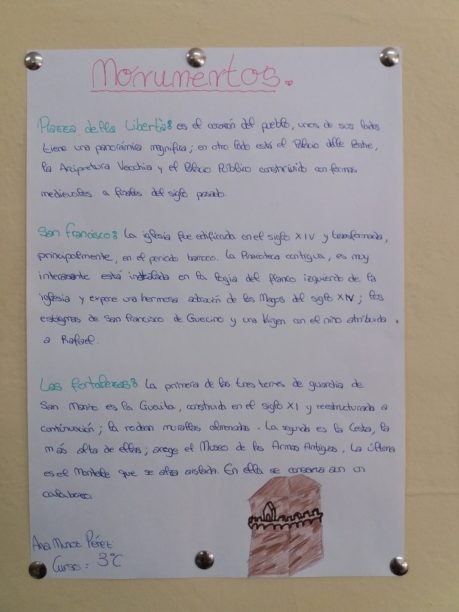 Monumentos.
Piazza della Libertà: es el corazón del pueblo, uno de sus lados
tiene una panorámica magnifica; en otro lado está el Palacio delle Poste,
la Arcipretura Vecchia y el Palacio Público construido con formas
medievales a finales del siglo pasado.
San Francisco: La iglesia fue edificada en el siglo XIV y transformada,
principalmente, en el periodo barroco. La Pinacoteca contigua, es muy
interesante está instalada en la logia del flanco izquierdo de la
iglesia y expone una hermosa adoración de los Magos del siglo XIV; los
estigmas de San Francisco de Guercino y una Virgen con el niño atribuida
a Rafael.
Las fortalezas: La primera de las tres torres de guardia de
San Marino es la Guaita, construida en el siglo XI y reestructurada a
continuación; la rodean murallas almenadas. La segunda es la Cesta, la
más alta de ellas; acoge el Museo de las Armas Antiguas. La última
es el Montale que se alza aislada. En ella se conserva aun un
calabozo.
Ana Munoz Pérez
Curso: 3°C